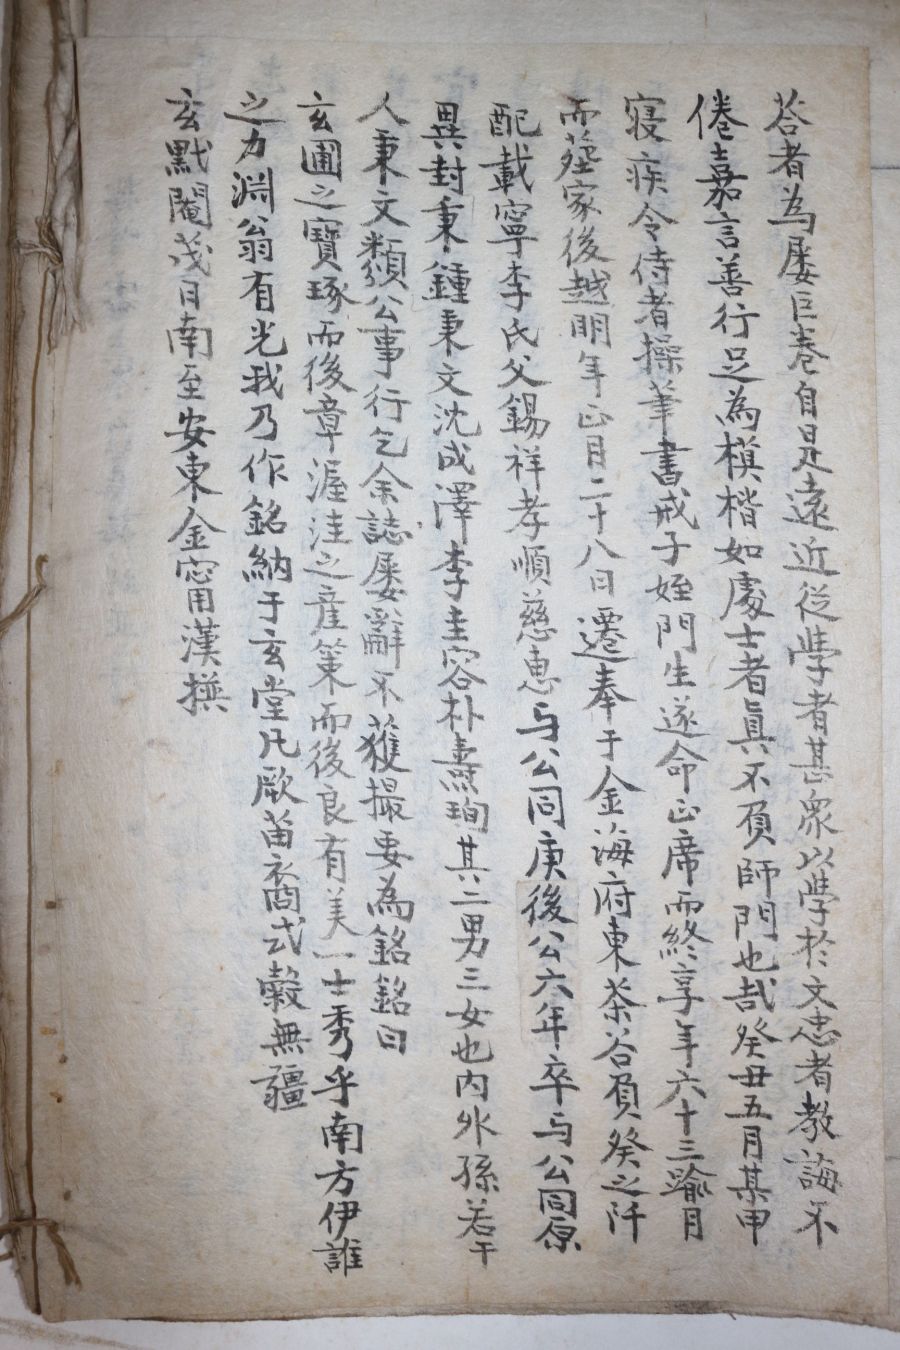 答者為屢巨卷自是遠近從學者甚衆以學於文忠者教誨不
倦嘉言善行足為模楷如處士者眞不負師門也哉癸丑五月某甲
寢疾令侍者操筆書戒子姪門生遂命正席而終享年六十三踰月
而葬家後越明年正月二十八日遷奉于金海府東茶谷負癸之阡
配載寧李氏父錫祥孝順慈惠与公同庚後公六年卒与公同原
異封秉鍾秉文沈成澤李圭容朴熹珣其二男三女也內外孫若干
人秉文纇公事行乞余誌屢辭不獲撮要為銘銘曰
玄圃之寶琢而後章渥洼之産策而後良有美一士秀乎南方伊誰
之力淵翁有光我乃作銘納于玄堂凡厥苗裔式穀無疆
玄黓閹茂日南至安東金甯漢撰